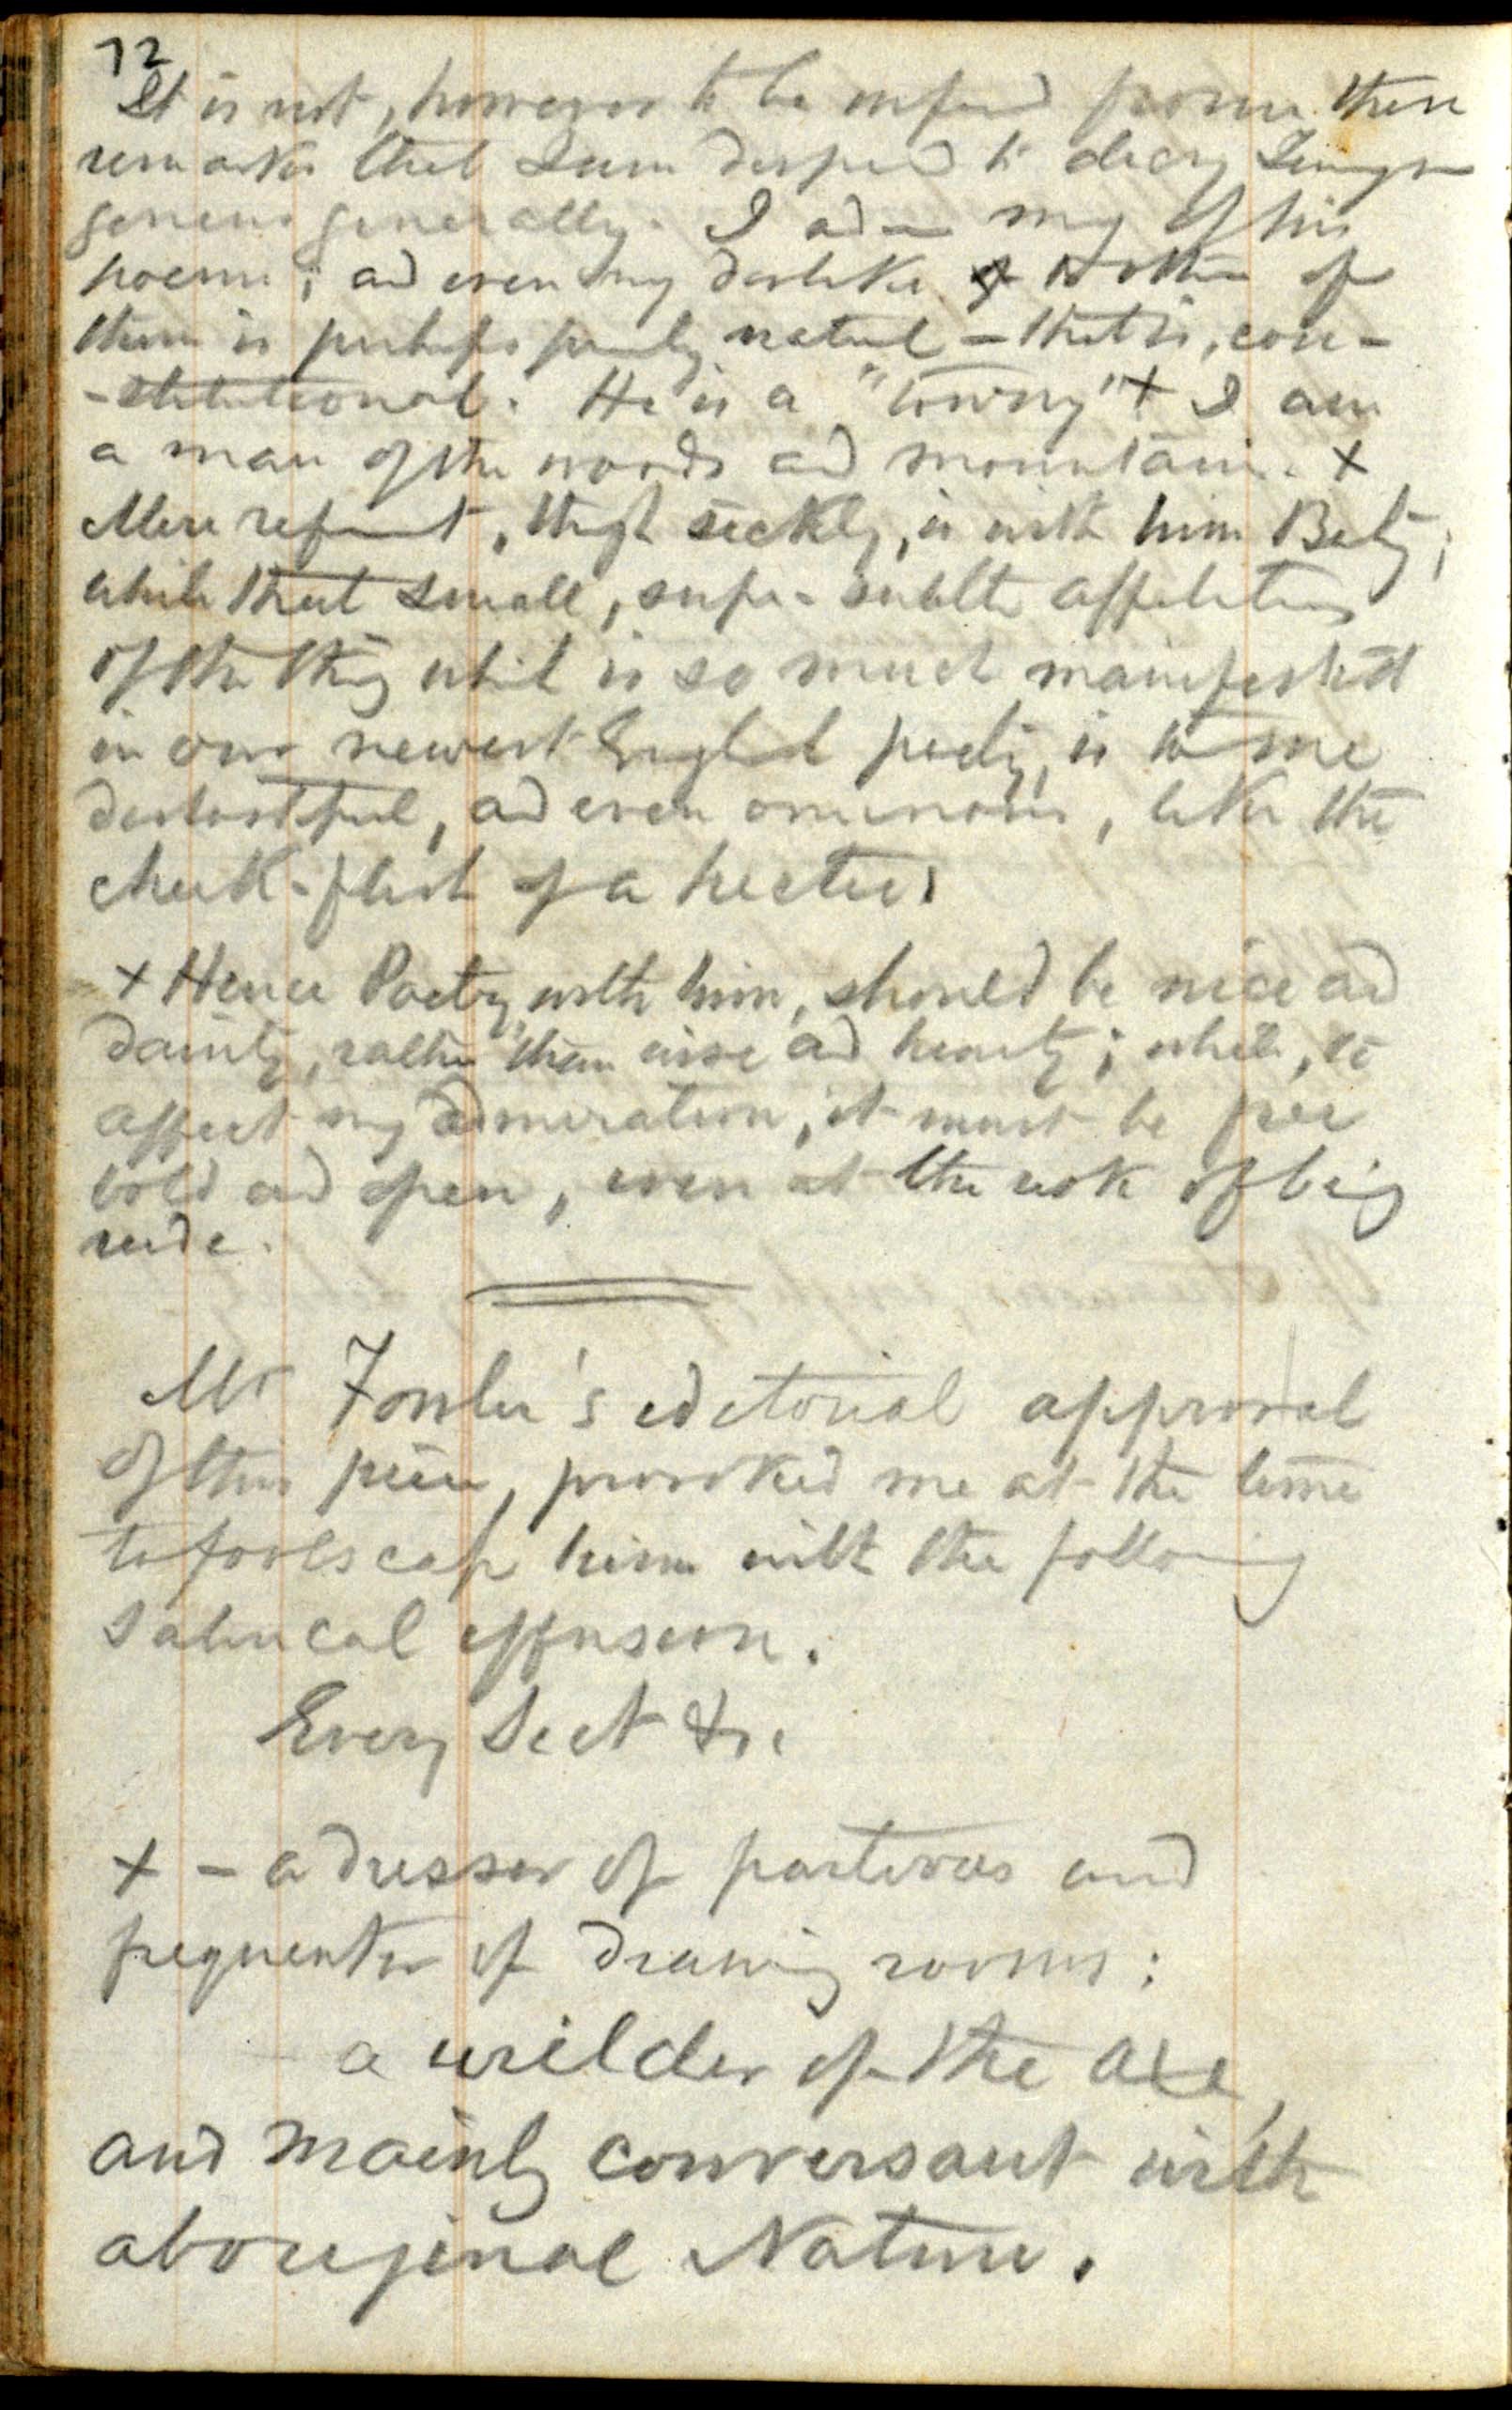 72
It is not, however to be inferd from these
remarks that I am disposed to decry Tennyson
genius generally. I adm my of his
poems; and even my dislike of to others of
them is perhaps partly natural – that is, con-
-stitutional. He is a "towny" + I am
a man of the woods and mountains. +
Mere refinement, though sickly, is with him Beauty;
while that small, super-subtle affectation
of the thing which is so much manifested
in our newest English poetry, is to me
distasteful, and even ominous, like the
cheek-flush of a hectic.
+ Hence Poetry, with him, should be nice and
dainty, rather than wise and hearty; while, to
affect my admiration, it must be free
bold and open, even at the risk of being
rude.
Mr Fowler's editorial approval
of this piece, provoked me at the time
to foolscap him with the following
satirical effusion.
Every Sect &c.
+ – a dresser of parterres and
frequenter of drawing rooms:
a wielder of the axe,
and mainly conversant with
aboriginal Nature.